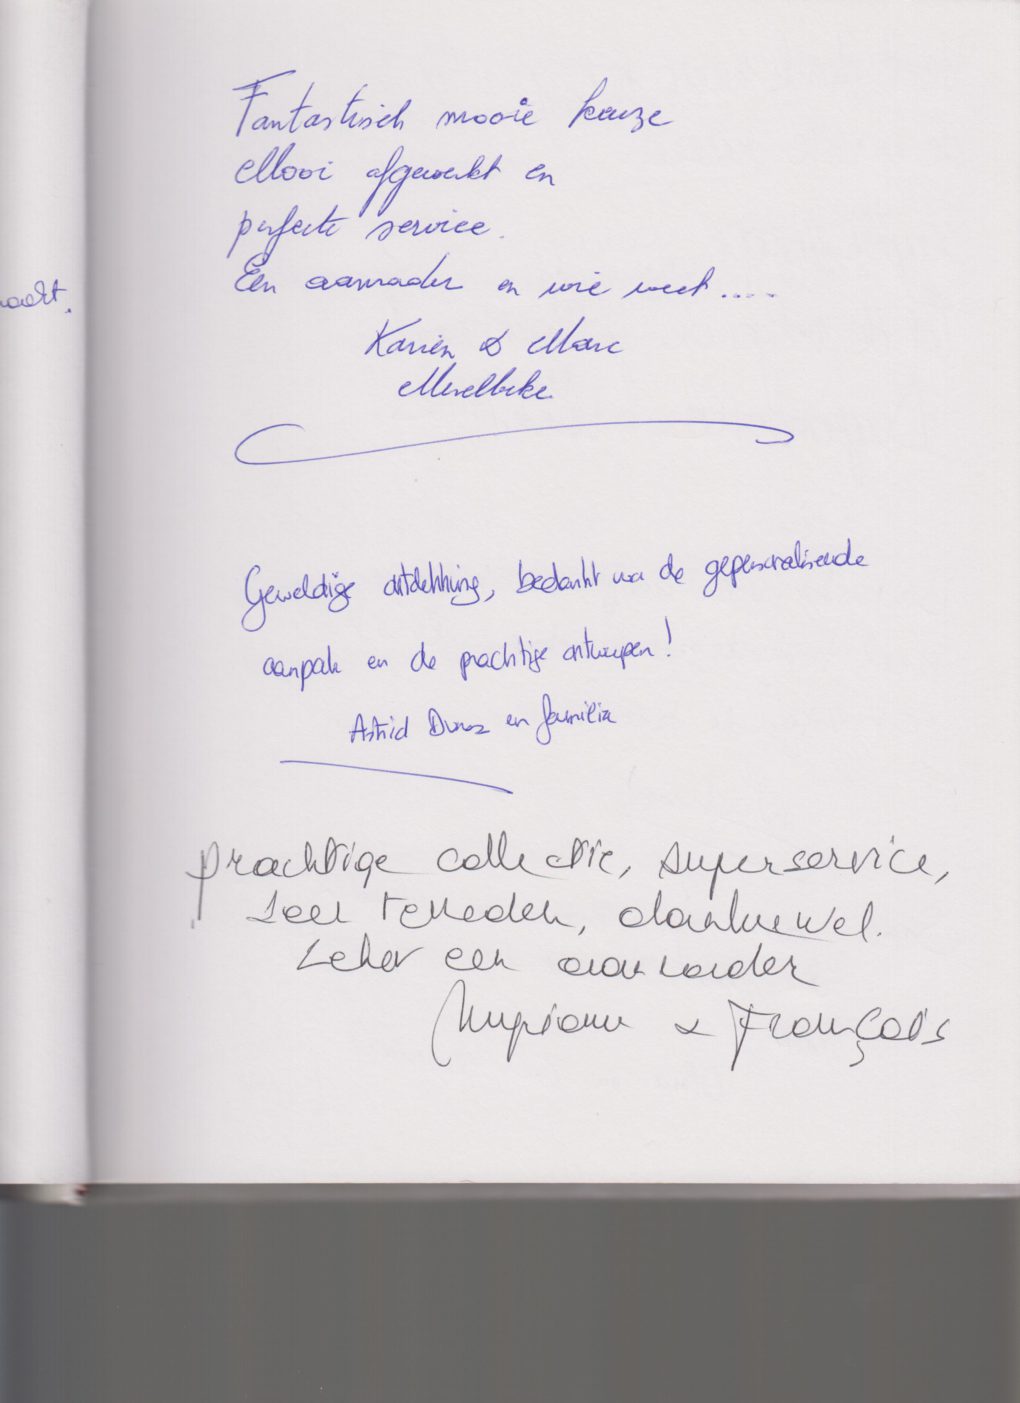 Fantastisch mooie keuze
Mooi afgewerkt en
perfecte service.
Een aanrader en wie weet....
Karien & Marc
Merelbeke
Geweldige ontdekking, bedankt voor de gepersonaliseerde
aanpak en de prachtige ontwerpen!
Astrid en familie
prachtige collectie, superservice,
zeer tevreden, dankuwel.
Zeker een aanrader
Myriam & François